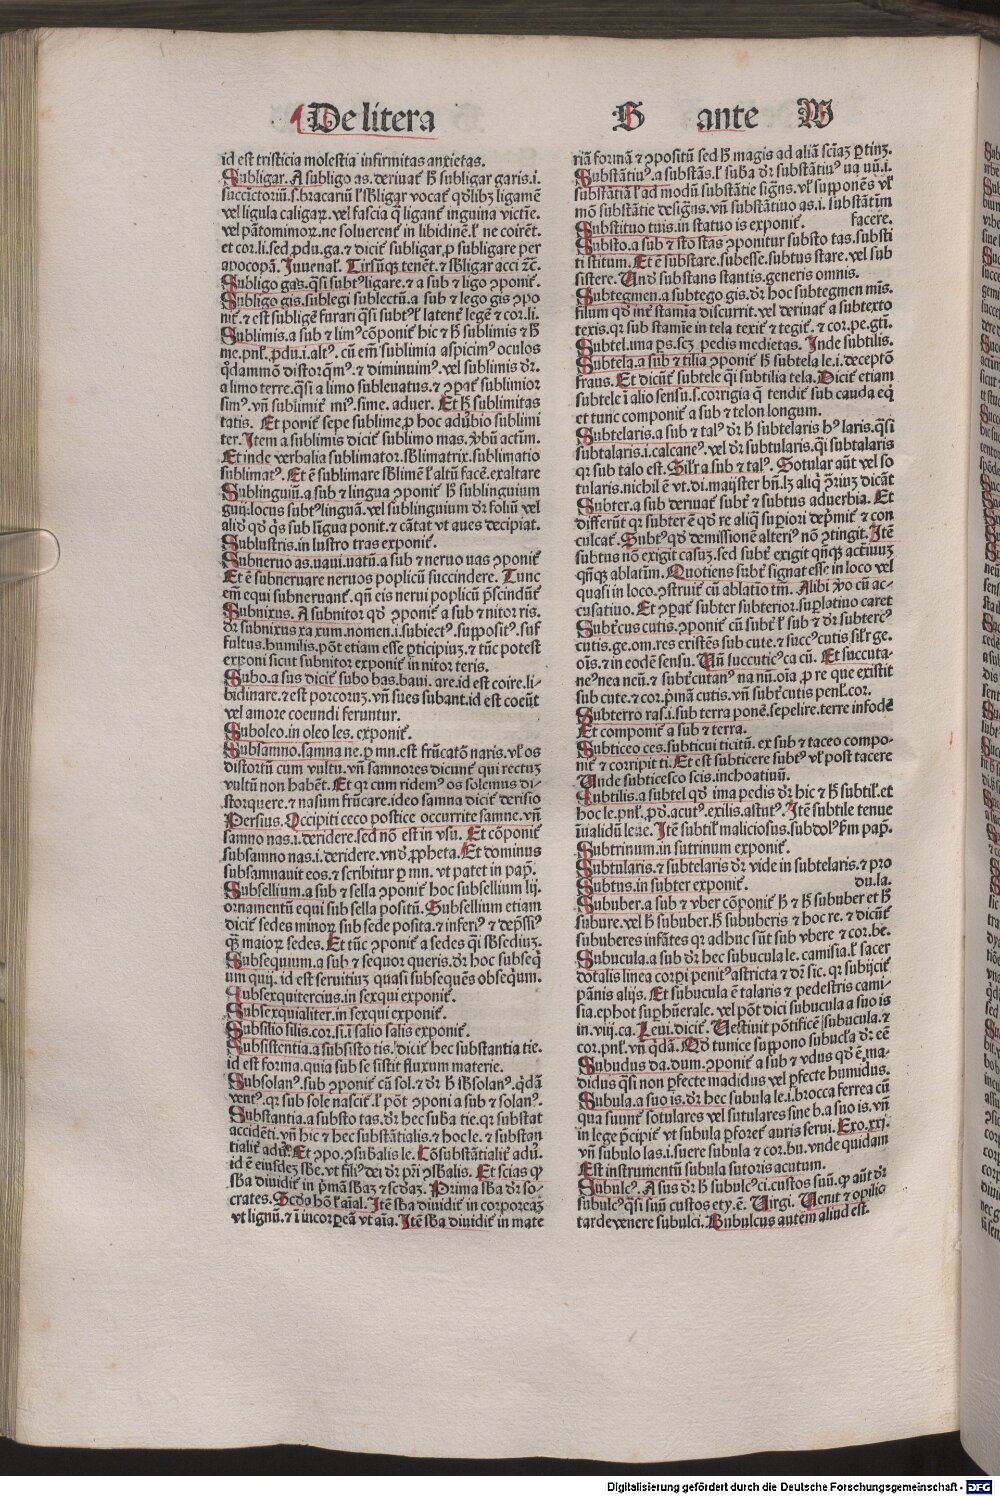 De litera S ante V
id est tristicia molestia infirmitas anxietas.
Subligar. A subligo as. deriuat᷑ hͦ subligar garis .i.
succinctoriũ .s. bracariũ l͛ sb̃ligar vocat᷑ qd̃libꝫ ligamẽ
vel ligula caligaꝝ. vel fascia q̃ ligant᷑ inguina victĩe.
vel pãtomimoꝝ. ne soluerent᷑ in libidinẽ. l͛ ne coirẽt.
et cor. li. sed ꝓdu. ga. ⁊ dicit᷑ subligar, ꝓ subligare per
apocopã. Iuuenal᷑. Tirsũqꝫ tenẽt. ⁊ sb̃ligar acci ⁊c̃.
Subligo gas. q̃si subtꝰ ligare. ⁊ a sub ⁊ ligo ꝯponit᷑.
Subligo gis. sublegi sublectũ. a sub ⁊ lego gis ꝯpo
nit᷑. ⁊ est subligẽ furari q̃si subtꝰ l͛ latent᷑ legẽ ⁊ cor. li.
Sublimis. a sub ⁊ limꝰ cõponit᷑ hic ⁊ hͦ sublimis ⁊ hͦ
me. pnl᷑. ꝓdu. i. altꝰ. cũ em̃ sublimia aspicimꝰ oculos
q̃dammõ distorq̃mꝰ. ⁊ diminuimꝰ. vel sublimis dr̃.
a limo terre. q̃si a limo subleuatus. ⁊ ꝯpat᷑ sublimior
simꝰ. vñ sublimit᷑ miꝰ. sime. aduer. Et hͦ sublimitas
tatis. Et ponit᷑ sepe sublime, ꝓ hoc adũbio sublimi
ter. Item a sublimis dicit᷑ sublimo mas. ṽbũ actĩm.
Et inde verbalia sublimator. sb̃limatrix. sublimatio
sublimatꝰ. Et ẽ sublimare sb̃limẽ l͛ altũ facẽ. exaltare
Sublinguiũ. a sub ⁊ lingua ꝯponit᷑ hͦ sublinguium
guij. locus subtꝰ linguã. vel sublinguium dr̃ foliũ vel
aliqd̃ qd̃ q̃s sub lĩgua ponit. ⁊ cãtat vt aues decipiat.
Sublustris. in lustro tras exponit᷑.
Subneruo as. uaui. uatũ. a sub ⁊ neruo uas ꝯponit᷑
Et ẽ subneruare neruos popliciũ succindere. Tunc
em̃ equi subneruant᷑. qñ eis nerui popliciũ p̃scindũt᷑
Subnixus. A subnitor qd̃ ꝯponit᷑ a sub ⁊ nitor ris.
dr̃ subnixus xa xum. nomen .i. subiectꝰ. suppositꝰ. suf
fultus. humilis. põt etiam esse ꝑticipiuꝫ. ⁊ tũc potest
exponi sicut subnitor exponit᷑ in nitor teris.
Subo. a sus dicit᷑ subo bas. baui. are. id est coire. li-
bidinare. ⁊ est porcorꝫ. vñ sues subant. id est coeũt
vel amore coeundi feruntur.
Suboleo. in oleo les. exponit᷑.
Subsamno. samna ne. ꝑ mn. est frũcatõ naris. vl᷑ os
distortũ cum vultu. vñ samnores dicunt᷑ qui rectuꝫ
vultũ non habẽt. Et qꝛ cum ridemꝰ os solemus di-
storquere. ⁊ nasum frũcare. ideo samna dicit᷑ derisio
Persius. Occipiti ceco postice occurrite samne. vñ
samno nas .i. deridere. sed nõ est in vsu. Et cõponit᷑
subsamno nas .i. deridere. vnd̃ ꝓpheta. Et dominus
subsamnauit eos. ⁊ scribitur ꝑ mn. vt patet in papĩ.
Subsellium. a sub ⁊ sella ꝯponit᷑ hoc subsellium lij.
ornamentũ equi sub sella positũ. Subsellium etiam
dicit᷑ sedes minoꝝ sub sede posita. ⁊ inferiꝰ ⁊ dep̃ssiꝰ
qꝫ maioꝝ sedes. Et tũc ꝯponit᷑ a sedes q̃si sb̃sediuꝫ.
Subsequium. a sub ⁊ sequor queris. dr̃ hoc subseq̃
um quij. id est seruitiuꝫ quasi subsequẽs obseq̃um.
Subsexquitercius. in sexqui exponit᷑.
Subsexqualiter. in sexqui exponit᷑.
Subsilio silis. cor. si. ĩ salio salis exponit᷑.
Subsistentia. a subsisto tis. dicit᷑ hec substantia tie.
id est forma. quia sub se sistit fluxum materie.
Subsolanꝰ. sub ꝯponit᷑ cũ sol. ⁊ dr̃ hͦ sb̃solanꝰ. q̃dã
ventꝰ. qꝛ sub sole nascit᷑. l͛ põt ꝯponi a sub ⁊ solanꝰ.
Substantia. a substo tas. dr̃ hec sub̃a tie. qꝛ substat
accidẽti. vñ hic ⁊ hec substãtialis. ⁊ hoc le. ⁊ substan
tialit᷑ adũ. Et ꝯpo. ꝯsub̃alis le. Cõsubstãtialit᷑ adũ.
id ẽ eiusdeꝫ sb̃e. vt filiꝰ dei dr̃ pr̃i ꝯsb̃alis. Et scias ꝙ
sb̃a diuidit᷑ in p̃mã sb̃aꝫ ⁊ scd̃aꝫ. Prima sb̃a dr̃ so-
crates. Scd̃s hõ l͛ aĩal. Itẽ sb̃a diuidit᷑ in corporeaꝫ
vt lignũ. ⁊ ĩ incorꝑeã vt aĩa. Itẽ sb̃a diuidit᷑ in mate
riã formã ⁊ ꝯpositũ sed hͦ magis ad aliã sciaꝫ ꝑtinꝫ.
Substãtiuꝰ. a substãs. l͛ sub̃a dr̃ substãtiuꝰ ua uũ .i.
substãtiã l͛ ad modũ substãtie sigñs. vl᷑ supponẽs vl᷑
mõ substãtie desigñs. vñ substãtiuo as .i. substãtiũm
Substituo tuis. in statuo is exponit᷑. facere.
Substo. a sub ⁊ sto stas ꝯponitur substo tas. substi
ti stitum. Et ẽ substare. subesse. subtus stare. vel sub
sistere. Vnd̃ substans stantis. generis omnis.
Subtegmen. a subtego gis. dr̃ hoc subtegmen mĩs.
filum qd̃ int᷑ stamia discurrit. vel deriuat᷑ a subtexto
texis. qꝛ sub stamĩe in tela texit᷑ ⁊ tegit᷑. ⁊ cor. pe. gti.
Subtel. ima ps. scꝫ pedis medietas. Inde subtilis.
Subtela. a sub ⁊ tilia ꝯponit᷑ hͦ subtela le .i. deceptõ
fraus. Et dicũt᷑ subtele q̃si subtilia tela. Dicit᷑ etiam
subtele ĩ alio sensu. s. corrigia q̃ tendit᷑ sub cauda eq̃
et tunc componit᷑ a sub ⁊ telon longum.
Subtelaris. a sub ⁊ talꝰ dr̃ hͦ subtelaris hꝰ laris. q̃si
subtalaris .i. calcaneꝰ. vel dr̃ subtularis. q̃si subtalaris
qꝛ sub talo est. Silr̃ a sub ⁊ talꝰ. Sotular aũt vel so
tularis. nichil ẽ vt. di. mag̃ster bñ. lꝫ aliq̃ ꝓriuꝫ dicãt
Subter. a sub deriuat᷑ subt᷑ ⁊ subtus aduerbia. Et
differũt qꝛ subter ẽ qd̃ re aliq̃ suꝑiori dep̃mit᷑ ⁊ con
culcat᷑. Subtꝰ qd̃ demissionẽ alteriꝰ nõ ꝯtingit. Itẽ
subtus nõ exigit casuꝫ. sed subt᷑ exigit qñqꝫ actĩuuꝫ
qñqꝫ ablatĩm. Quotiens subt᷑ signat esse in loco vel
quasi in loco. ꝯstruit᷑ cũ ablatio tm̃. Alibi ṽo cũ ac-
cusatiuo. Et ꝯpat᷑ subter subterior. suꝑlatino caret
Subt᷑cus cutis. ꝯponit᷑ cũ subt᷑ l͛ sub ⁊ dr̃ subtercꝰ
cutis. ge. om. res existẽs sub cute. ⁊ succꝰ cutis silr̃ ge.
oĩs. ⁊ in eodẽ sensu. Vñ succuticꝰ ca cũ. Et succuta-
neꝰ nea neũ. ⁊ subt᷑cutanꝰ na nũ. oĩa, ꝓ re que existit
sub cute. ⁊ cor. p̃mã cutis. vñ subt᷑cutis penl᷑. cor.
Subterro ras .i. sub terra ponẽ. sepelire. terre infodẽ
Et componit᷑ a sub ⁊ terra.
Subticeo ces. subticui ticitũ. ex sub ⁊ taceo compo-
nit᷑ ⁊ corripit ti. Et est subticere subtꝰ vl᷑ post tacere
Vnde subticesco scis. inchoatiuũ.
Subtilis. a subtel qd̃ ima pedis dr̃ hic ⁊ hͦ subtil᷑. et
hoc le. pnl᷑. ꝓd. acutꝰ. exilis. astutꝰ. Itẽ subtile tenue
inualidũ leue. Itẽ subtil᷑ maliciosus. subdolꝰ ẜm pap̃.
Subtrinum. in sutrinum exponit᷑.
Subtularis. ⁊ subtelaris dr̃ vide in subtelaris. ⁊ pro
Subtus. in subter exponit᷑. du. la.
Sububer. a sub ⁊ vber cõponit᷑ hͦ ⁊ hͦ sububer et hͦ
subure. vel hͦ sububer. hͦ sububeris ⁊ hoc re. ⁊ dicũt᷑
sububeres infãtes qꝛ adhuc sũt sub vbere ⁊ cor. be.
Subucula. a sub dr̃ hec subucula le. camisia. l͛ sacer
dotalis linea corꝑi penitꝰ astricta ⁊ dr̃ sic. qꝛ subijcit᷑
pãnis alijs. Et subucula ẽ talaris ⁊ pedestris cami-
sia. ephot suꝑhũerale. vel põt dici subucula a suo is
in. viij. ca. Leui. dicit᷑. Vestiuit põtificẽ subucula. ⁊
cor. pnl᷑. vñ q̃dã. Qd̃ tunice suppono subucl̃a dr̃ eẽ
Subudus da. dum. ꝯponit᷑ a sub ⁊ vdus qd̃ ẽ, ma-
didus q̃si non ꝑfecte madidus vel ꝑfecte humidus.
Subula. a suo is. dr̃ hec subula le .i. brocca ferrea cũ
qua suunt᷑ sotulares vel sutulares sine b. a suo is. vñ
in lege p̃cipit᷑ vt subula ꝑforet᷑ auris serui. Exo. xxj.
vñ subulo las .i. suere subula ⁊ cor. bu. vnde quidam
Est instrumentũ subula sutoris acutum.
Subulcꝰ. A sus dr̃ hͦ subulcꝰ ci. custos suũ. ꝙ aũt dr̃
subulcꝰ q̃si suũ custos ety. ẽ. Virgi. Venit ⁊ opilio
tarde venere subulci. Bubulcus autem aliud est.
Digitalisierung gefördert durch die Deutsche Forschungsgemeinschaft - DFG